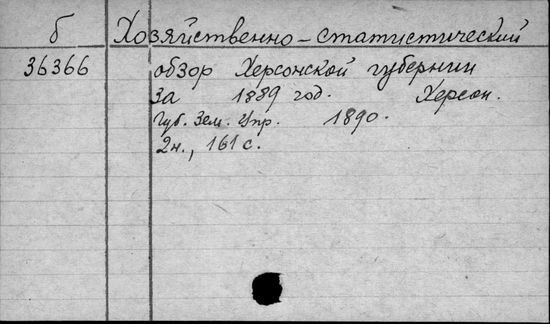 б Хозяйственно-статистический
36366 обзор Херсонской губернии
за 1889 год. Херсон.
Губ. Зем. Упр. 1890.
2н., 161 с.